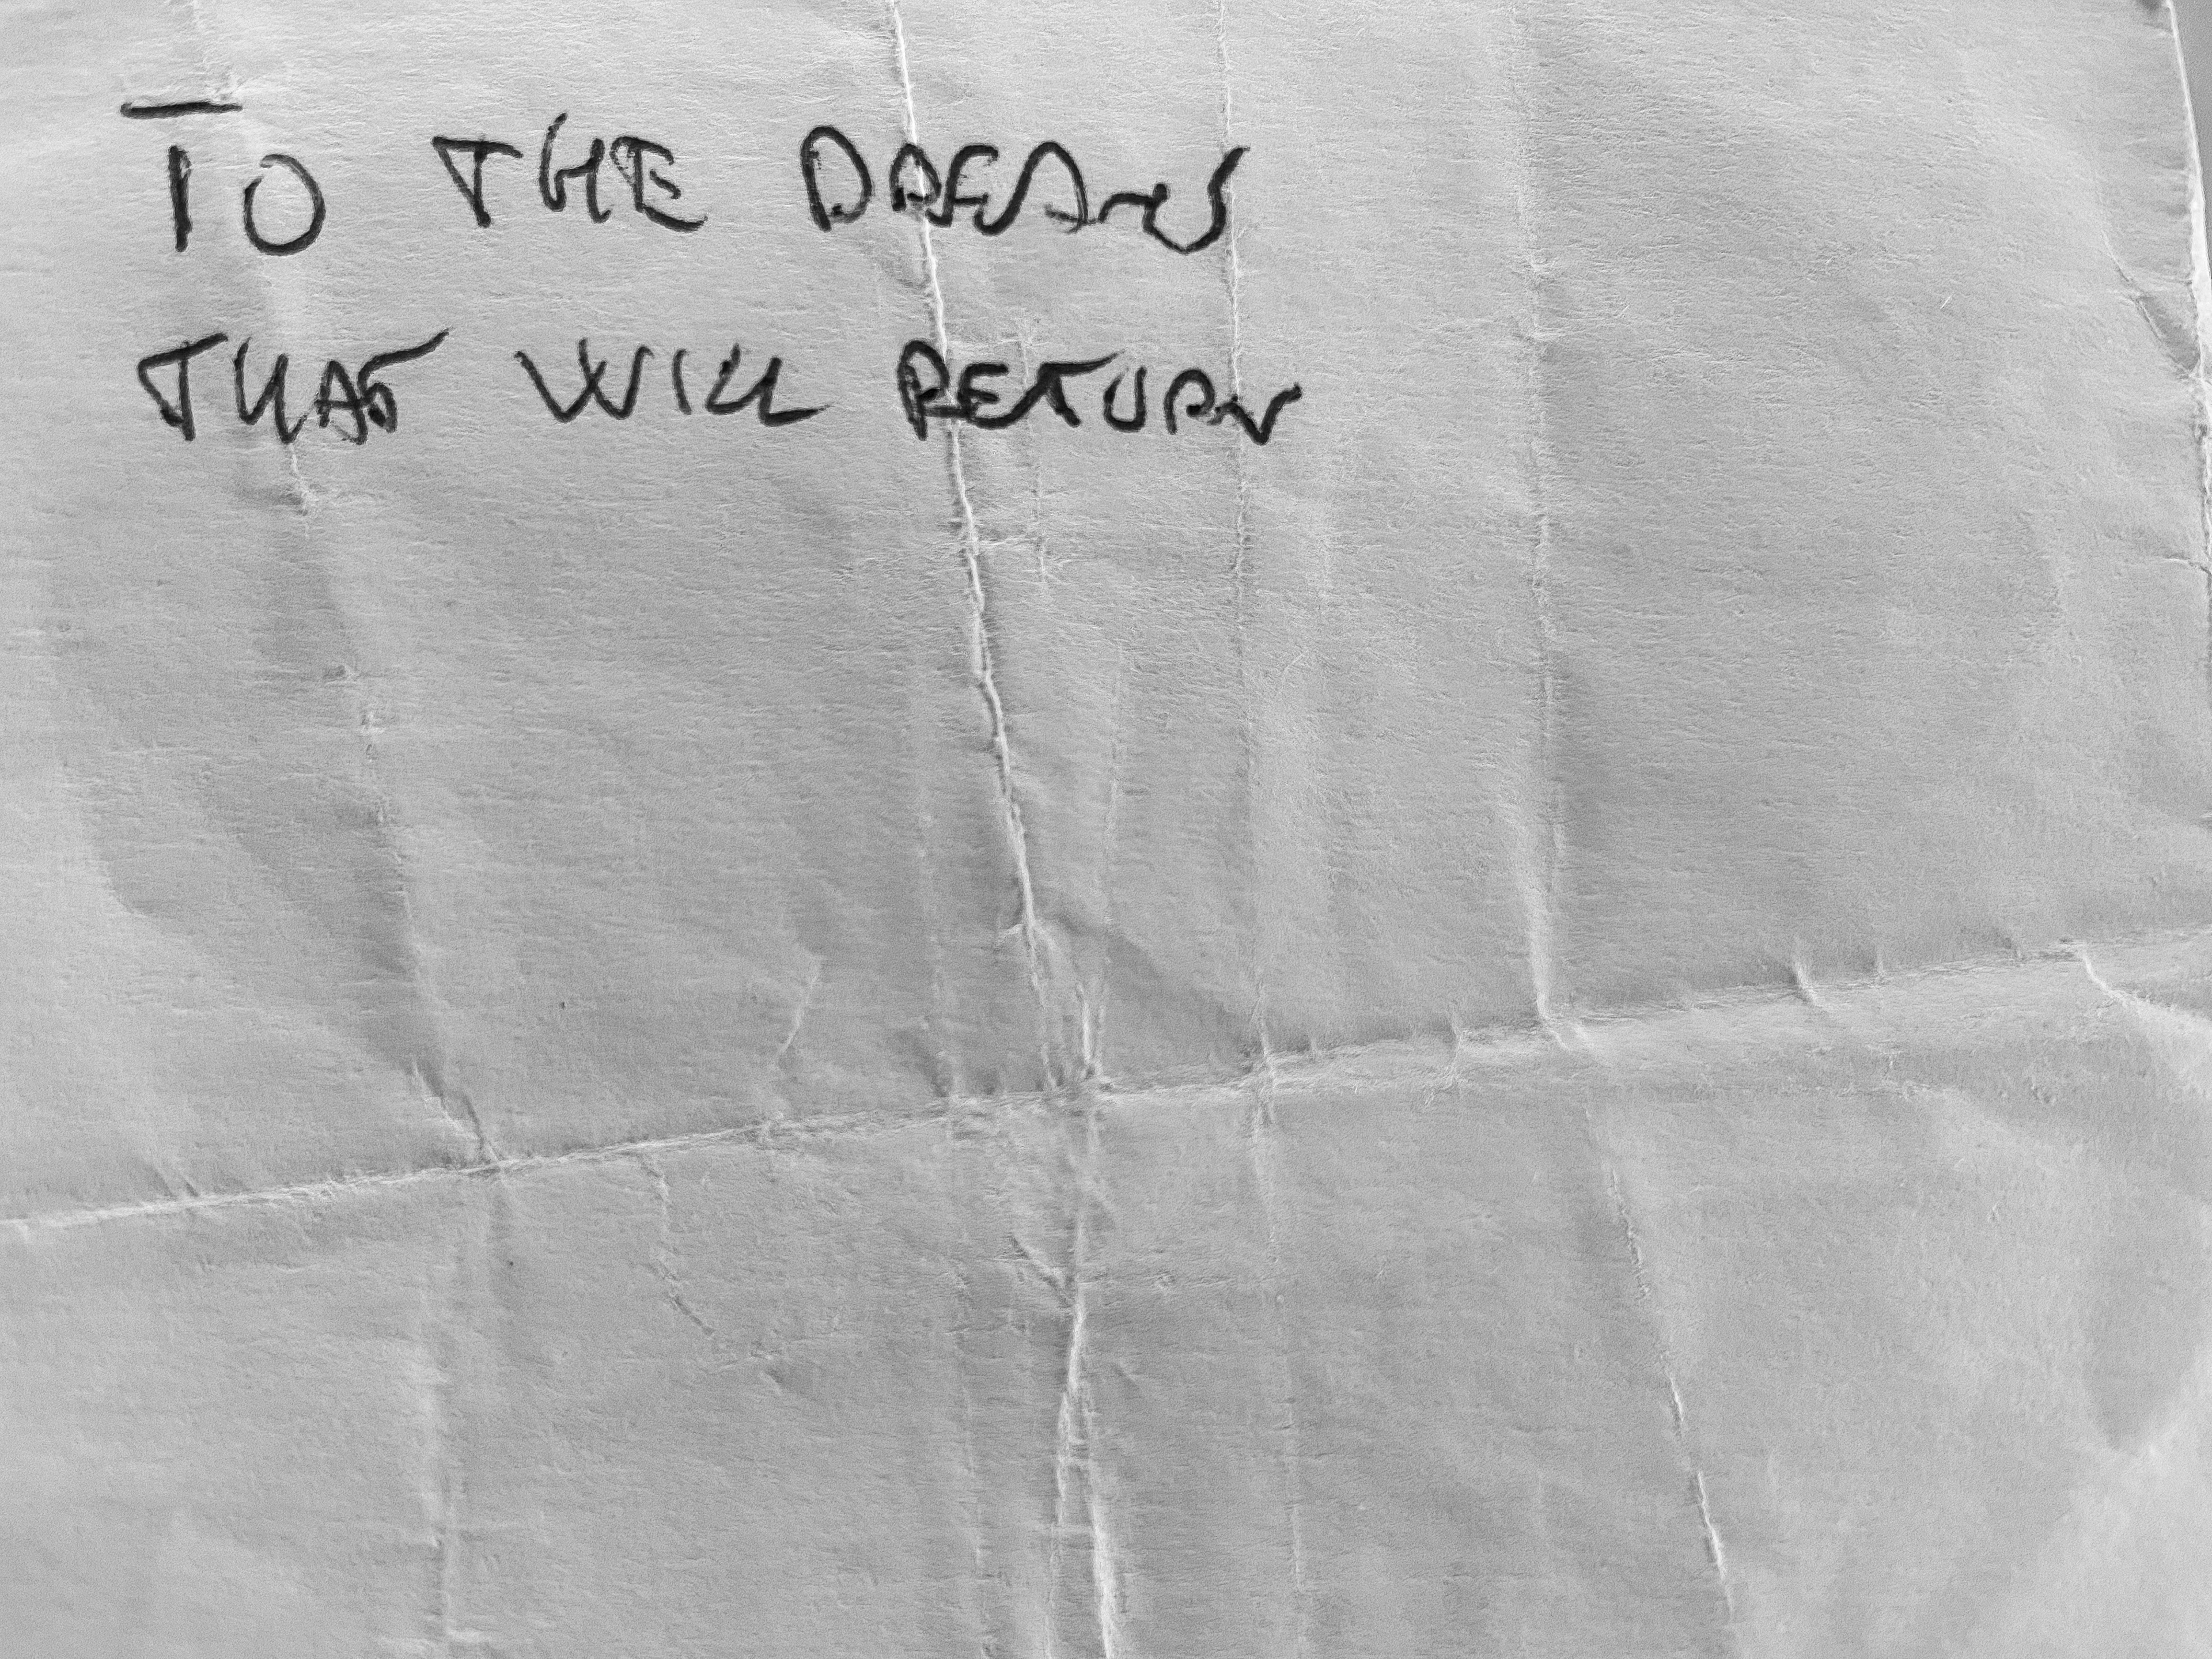 TO THE DREAMS
THAT WILL RETURN